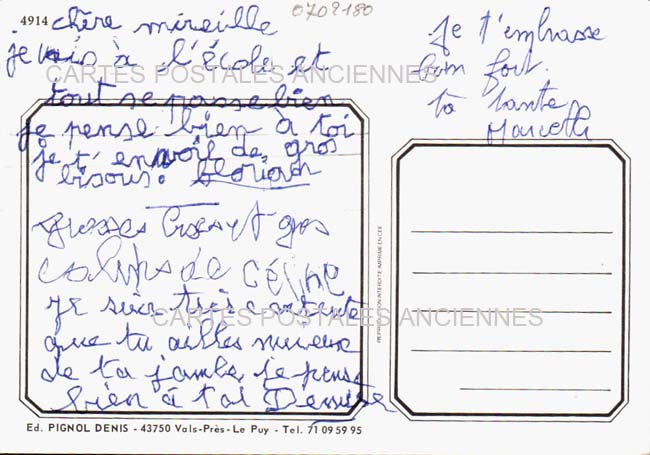 4914
0702180
chère mireille
je vais à l'école et
tout se passe bien
je pense bien à toi
je t'envoil de gros
bisous. Florian
grosses bises et gros
calins de Céline
je suis très contente
que tu ailles mieux
de ta jambe je pense
bien à toi Denise
je t'embrasse
bien fort.
ta tante
Marcelle
CARTES POSTALES ANCIENNES
CARTES POSTALES ANCIENNES
REPRODUCTION INTERDITE IMPRIME EN CEE
Ed. PIGNOL DENIS - 43750 Vals-Près-Le Puy - Tel. 71 09 59 95